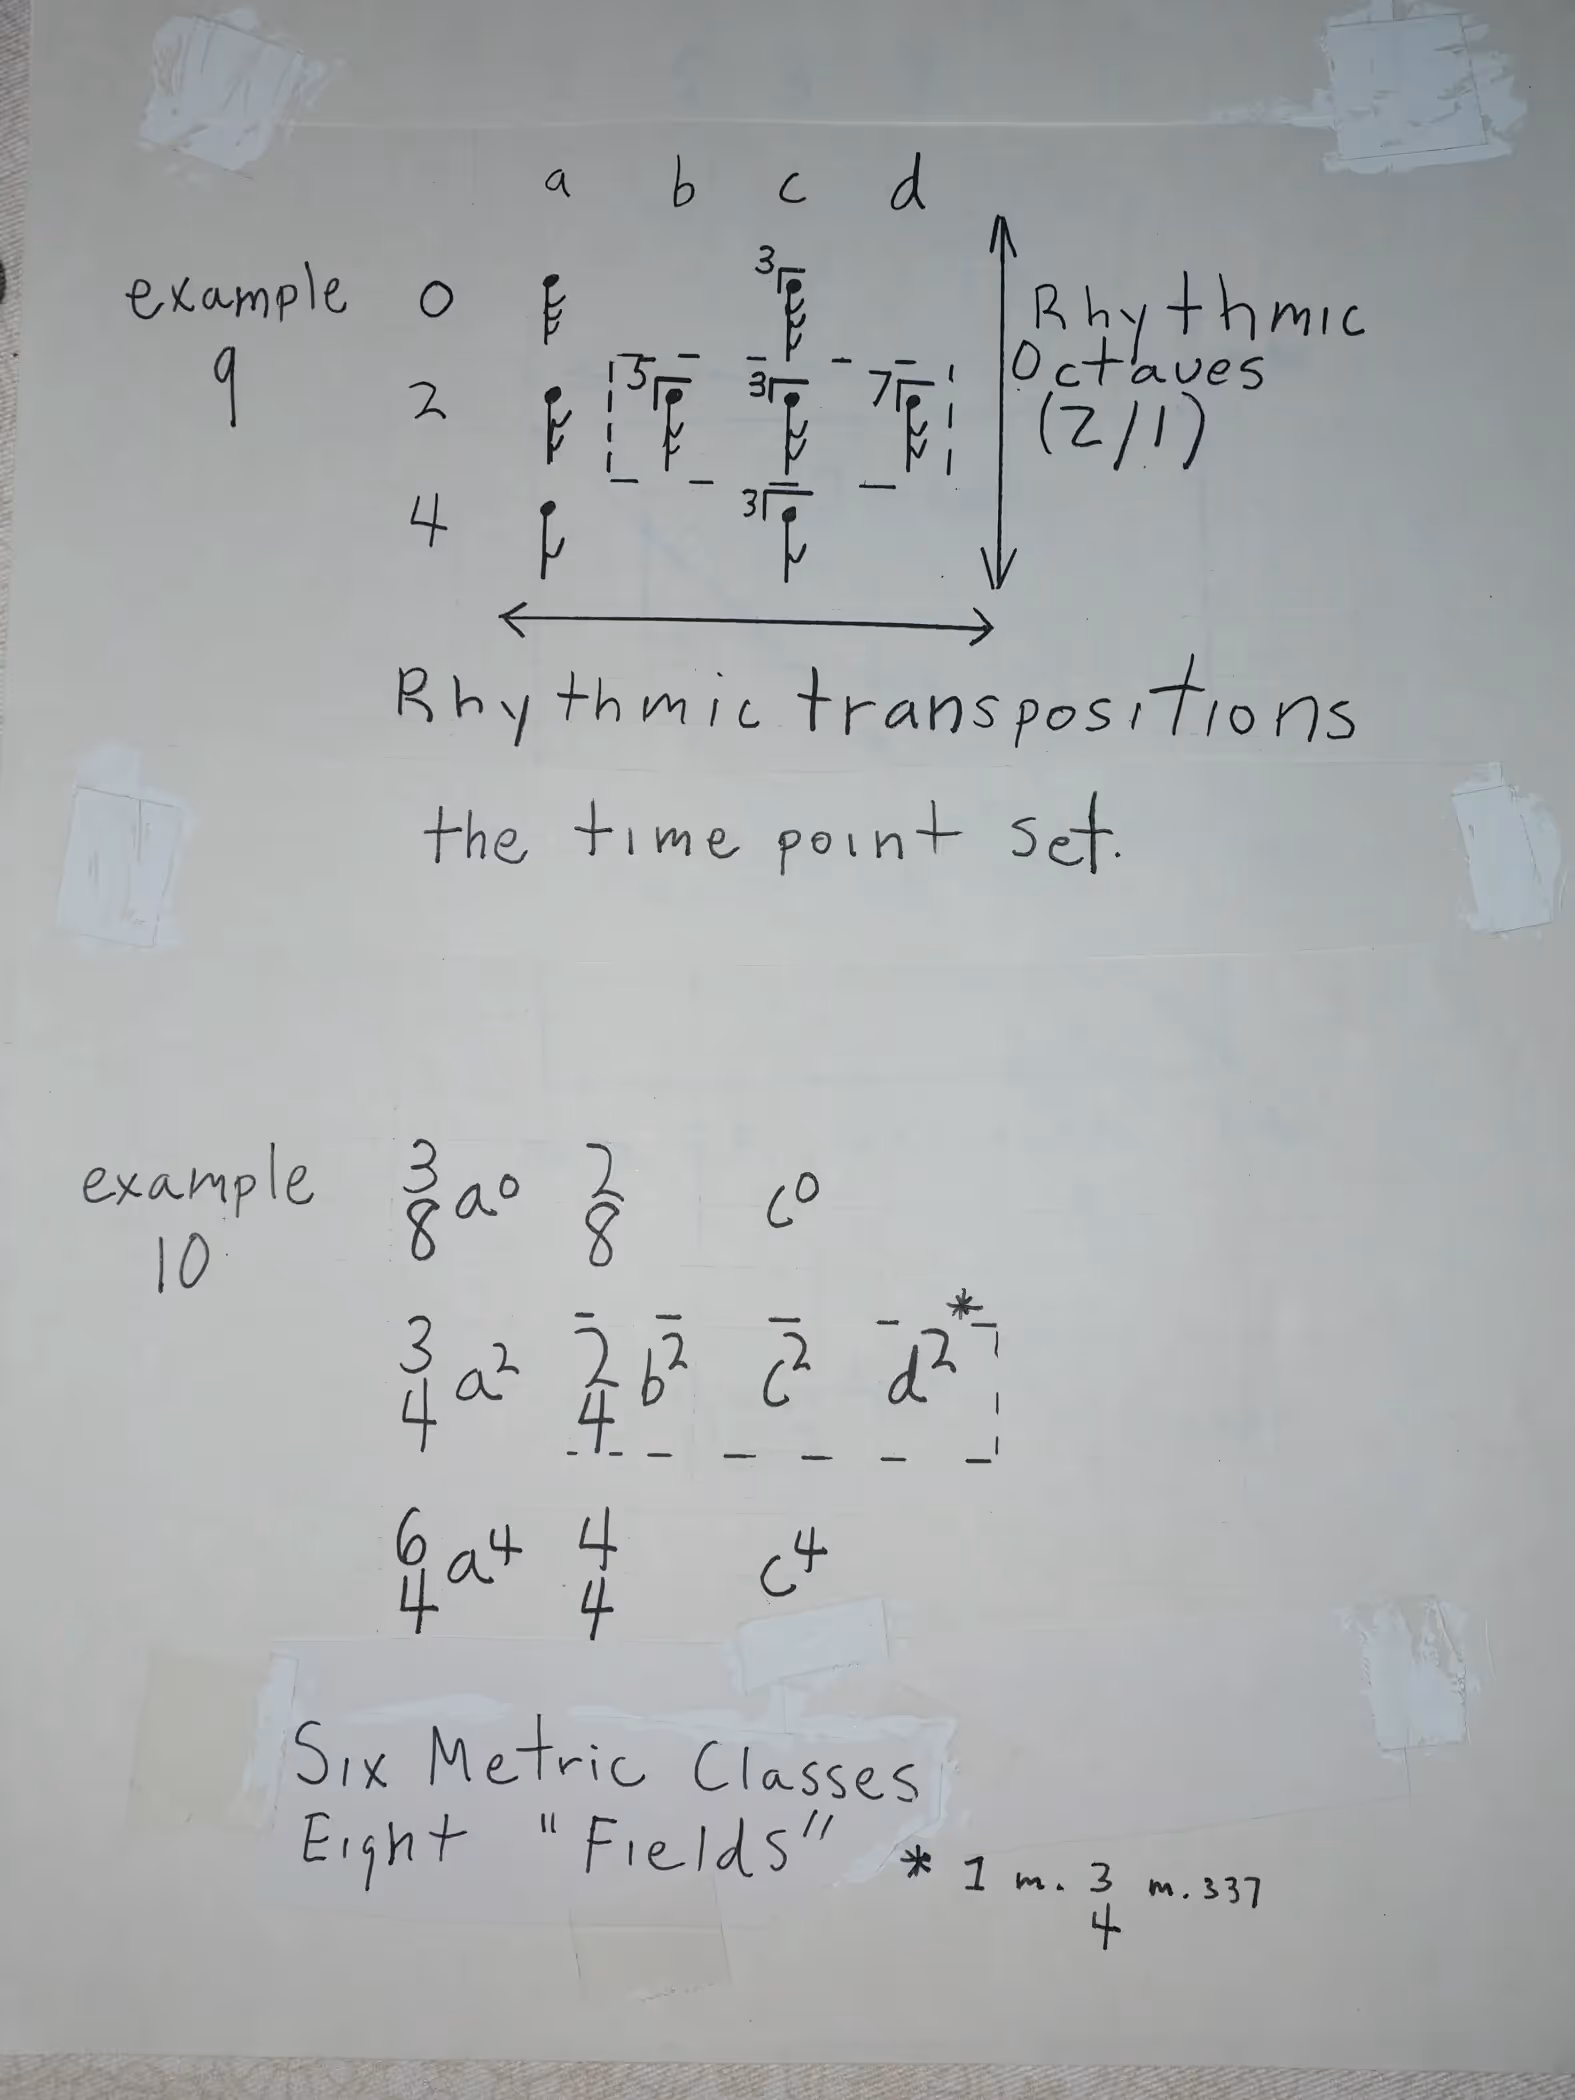 a b c d
example 0 3
9 2 5 3 7
4 3
Rhythmic
Octaves
(2/1)
Rhythmic transpositions
the time point set.
example 3/8 a⁰ 2/8 c⁰
10
3/4 a² 2/4 b² c² d²*
6/4 a⁴ 4/4 c⁴
Six Metric Classes
Eight "Fields"
* 1 m. 3/4 m. 337